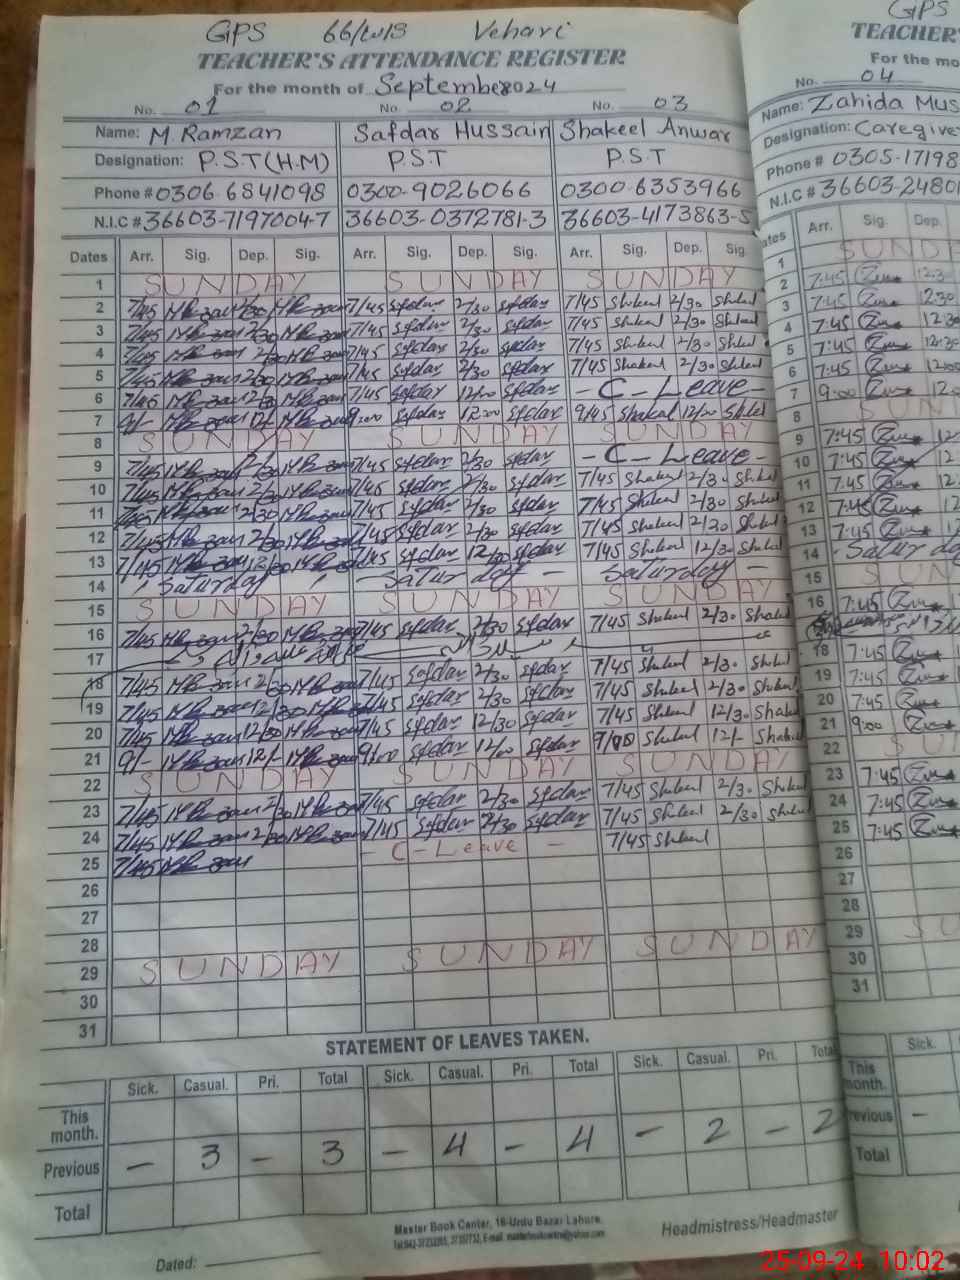 GPS 66/WB Vehari
TEACHER'S ATTENDANCE REGISTER
For the month of September 2024
No. 01 No. 02 No. 03
Name: M. Ramzan Safdar Hussain Shakeel Anwar
Designation: P.S.T (H.M) P.S.T P.S.T
Phone # 0306-6841098 0300-9026066 0300-6353966
N.I.C # 36603-7197004-7 36603-0372781-3 36603-4173863-5
Dates Arr. Sig. Dep. Sig. Arr. Sig. Dep. Sig. Arr. Sig. Dep. Sig.
1 SUNDAY SUNDAY SUNDAY
2 7/45 2/30 7/45 Safdar 2/30 Safdar 7/45 Shakeel 2/30 Shakeel
3 7/45 2/30 7/45 Safdar 2/30 Safdar 7/45 Shakeel 2/30 Shakeel
4 7/45 2/30 7/45 Safdar 2/30 Safdar 7/45 Shakeel 2/30 Shakeel
5 7/45 2/30 7/45 Safdar 2/30 Safdar 7/45 Shakeel 2/30 Shakeel
6 7/45 12/30 7/45 Safdar 12/00 Safdar - C - Leave -
7 9/- 12/- 9:00 Safdar 12:00 Safdar 9/45 Shakeel 12/00 Shakeel
8 SUNDAY SUNDAY SUNDAY
9 7/45 2/30 7/45 Safdar 2/30 Safdar - C - Leave -
10 7/45 2/30 7/45 Safdar 2/30 Safdar 7/45 Shakeel 2/30 Shakeel
11 7/45 2/30 7/45 Safdar 2/30 Safdar 7/45 Shakeel 2/30 Shakeel
12 7/45 2/30 7/45 Safdar 2/30 Safdar 7/45 Shakeel 2/30 Shakeel
13 7/45 12/30 7/45 Safdar 12/30 Safdar 7/45 Shakeel 12/30 Shakeel
14 Saturday - Saturday - Saturday -
15 SUNDAY SUNDAY SUNDAY
16 7/45 2/30 7/45 Safdar 2/30 Safdar 7/45 Shakeel 2/30 Shakeel
17
18 7/45 2/30 7/45 Safdar 2/30 Safdar 7/45 Shakeel 2/30 Shakeel
19 7/45 12/30 7/45 Safdar 2/30 Safdar 7/45 Shakeel 2/30 Shakeel
20 7/45 12/30 7/45 Safdar 12/30 Safdar 7/45 Shakeel 12/30 Shakeel
21 9/- 12/- 9/00 Safdar 12/00 Safdar 9/00 Shakeel 12/- Shakeel
22 SUNDAY SUNDAY SUNDAY
23 7/45 2/30 7/45 Safdar 2/30 Safdar 7/45 Shakeel 2/30 Shakeel
24 7/45 2/30 7/45 Safdar 2/30 Safdar 7/45 Shakeel 2/30 Shakeel
25 7/45 - C - Leave - 7/45 Shakeel
26
27
28
29 SUNDAY SUNDAY SUNDAY
30
31
STATEMENT OF LEAVES TAKEN.
Sick. Casual. Pri. Total Sick. Casual. Pri. Total Sick. Casual. Pri. Total
This month.
Previous - 3 - 3 - 4 - 4 - 2 - 2
Total
Master Book Center, 16-Urdu Bazar Lahore.
Headmistress/Headmaster
Dated:
GPS
TEACHER'
For the mo
No. 04
Name: Zahida Mus
Designation: Caregive
Phone # 0305-17198
N.I.C # 36603-2480
ates Arr. Sig. Dep.
1 SUNDA
2 7:45 12:3
3 7:45 12:30
4 7:45 12:3
5 7:45 12:30
6 7:45 12:00
7 9:00 12:0
8 SUN
9 7:45 12
10 7:45 12
11 7:45 12
12 7:45 12
13 7:45 12
14 Saturda
15 SUN
16 7:45 12
18 7:45
19 7:45
20 7:45
21 9:00
22 SU
23 7:45
24 7:45
25 7:45
26
27
28
29 SU
30
31
Sick.
This month.
revious -
Total
25-09-24 10:02